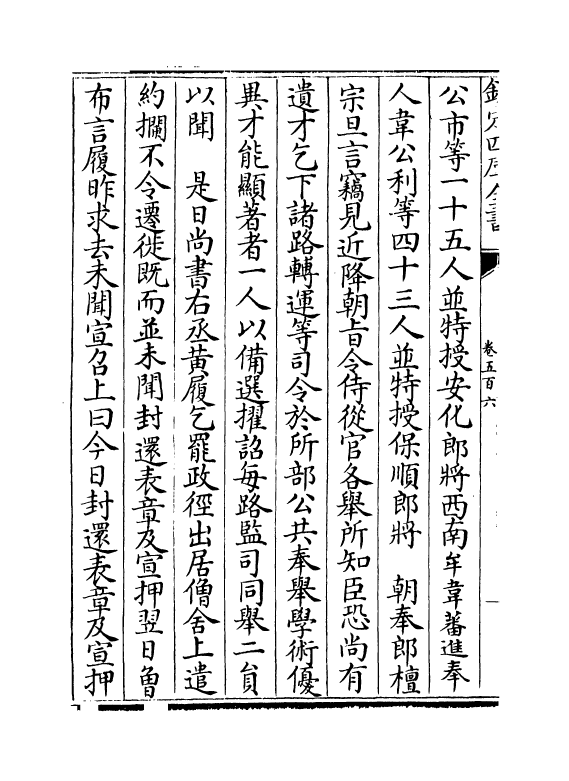 欽定四庫全書
卷五百六
公市等一十五人並特授安化郎將西南牟韋蕃進奉
人韋公利等四十三人並特授保順郎將　朝奉郎檀
宗旦言竊見近降朝旨令侍從官各舉所知臣恐尚有
遺才乞下諸路轉運等司令於所部公共奉舉學術優
異才能顯著者一人以備選擢詔每路監司同舉二員
以聞　是日尚書右丞黃履乞罷政徑出居僧舍上遣
約攔不令遷徙既而並未聞封還表章及宣押翌日曾
布言履昨求去未聞宣召上曰今日封還表章及宣押